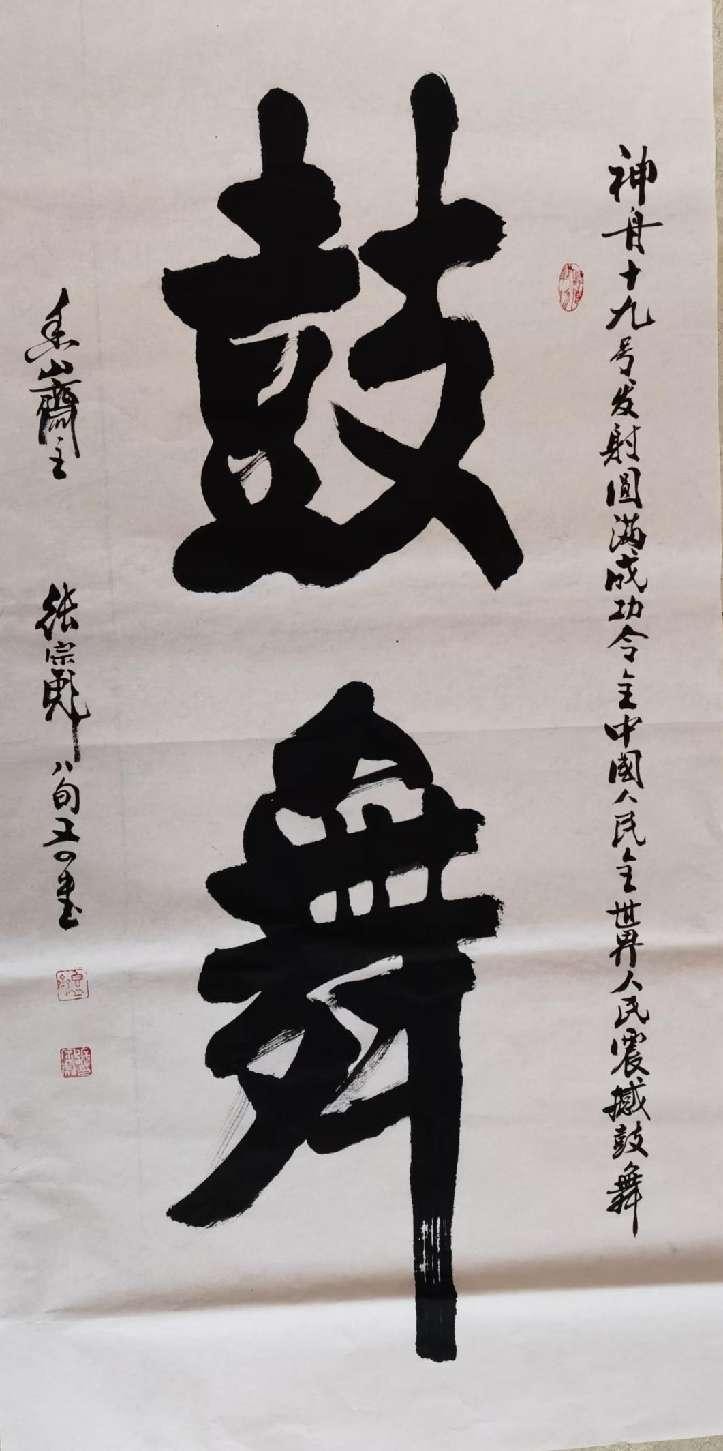 神舟十九号发射圆满成功令全中国人民全世界人民震撼鼓舞
鼓舞
山齋主
张宗彪八旬五书